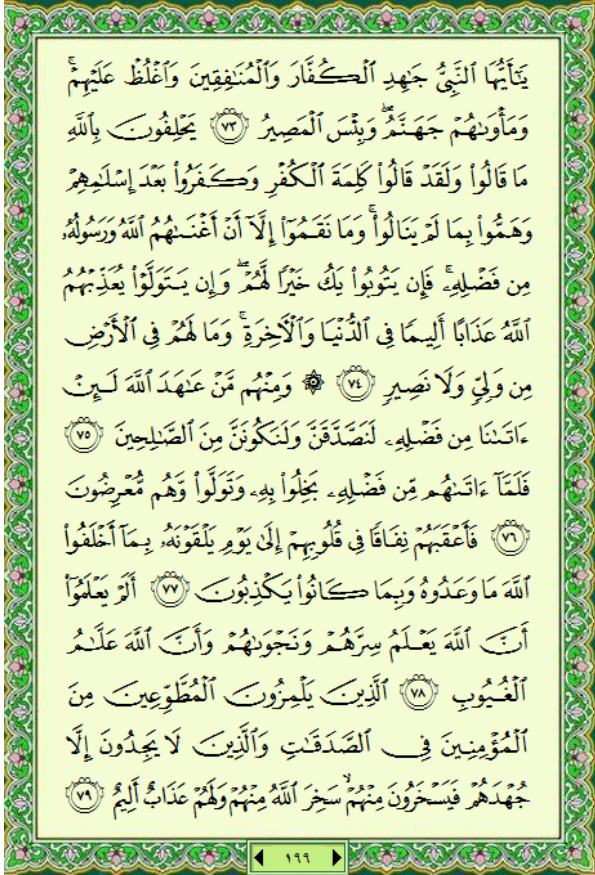 يَٰٓأَيُّهَا ٱلنَّبِىُّ جَٰهِدِ ٱلْكُفَّارَ وَٱلْمُنَٰفِقِينَ وَٱغْلُظْ عَلَيْهِمْ ۚ
وَمَأْوَىٰهُمْ جَهَنَّمُ ۖ وَبِئْسَ ٱلْمَصِيرُ ﴿٧٣﴾ يَحْلِفُونَ بِٱللَّهِ
مَا قَالُوا۟ وَلَقَدْ قَالُوا۟ كَلِمَةَ ٱلْكُفْرِ وَكَفَرُوا۟ بَعْدَ إِسْلَٰمِهِمْ
وَهَمُّوا۟ بِمَا لَمْ يَنَالُوا۟ ۚ وَمَا نَقَمُوٓا۟ إِلَّآ أَنْ أَغْنَىٰهُمُ ٱللَّهُ وَرَسُولُهُۥ
مِن فَضْلِهِۦ ۚ فَإِن يَتُوبُوا۟ يَكُ خَيْرًا لَّهُمْ ۖ وَإِن يَتَوَلَّوْا۟ يُعَذِّبْهُمُ
ٱللَّهُ عَذَابًا أَلِيمًا فِى ٱلدُّنْيَا وَٱلْءَاخِرَةِ ۚ وَمَا لَهُمْ فِى ٱلْأَرْضِ
مِن وَلِىٍّ وَلَا نَصِيرٍ ﴿٧٤﴾ ۞ وَمِنْهُم مَّنْ عَٰهَدَ ٱللَّهَ لَئِنْ
ءَاتَىٰنَا مِن فَضْلِهِۦ لَنَصَّدَّقَنَّ وَلَنَكُونَنَّ مِنَ ٱلصَّٰلِحِينَ ﴿٧٥﴾
فَلَمَّآ ءَاتَىٰهُم مِّن فَضْلِهِۦ بَخِلُوا۟ بِهِۦ وَتَوَلَّوا۟ وَّهُم مُّعْرِضُونَ
﴿٧٦﴾ فَأَعْقَبَهُمْ نِفَاقًا فِى قُلُوبِهِمْ إِلَىٰ يَوْمِ يَلْقَوْنَهُۥ بِمَآ أَخْلَفُوا۟
ٱللَّهَ مَا وَعَدُوهُ وَبِمَا كَانُوا۟ يَكْذِبُونَ ﴿٧٧﴾ أَلَمْ يَعْلَمُوٓا۟
أَنَّ ٱللَّهَ يَعْلَمُ سِرَّهُمْ وَنَجْوَىٰهُمْ وَأَنَّ ٱللَّهَ عَلَّٰمُ
ٱلْغُيُوبِ ﴿٧٨﴾ ٱلَّذِينَ يَلْمِزُونَ ٱلْمُطَّوِّعِينَ مِنَ
ٱلْمُؤْمِنِينَ فِى ٱلصَّدَقَٰتِ وَٱلَّذِينَ لَا يَجِدُونَ إِلَّا
جُهْدَهُمْ فَيَسْخَرُونَ مِنْهُمْ ۙ سَخِرَ ٱللَّهُ مِنْهُمْ وَلَهُمْ عَذَابٌ أَلِيمٌ ﴿٧٩﴾
١٩٩